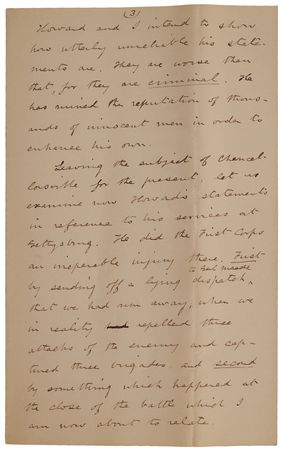 (3)
Howard and I intend to show
how utterly unreliable his state-
ments are. They are worse than
that, for they are criminal. He
has ruined the reputation of thous-
ands of innocent men in order to
enhence his own.
Leaving the subject of Chancel-
lorsville for the present, let us
examine now Howard's statements
in reference to his services at
Gettysburg. He did the First Corps
an ineperable injury there, First
by sending off a lying dispatch, to Genl Meade
that we had run away, when we
in reality repelled three
attacks of the enemy and cap-
tured three brigades, and second
by something which happened at
the close of the battle which I
am now about to relate.